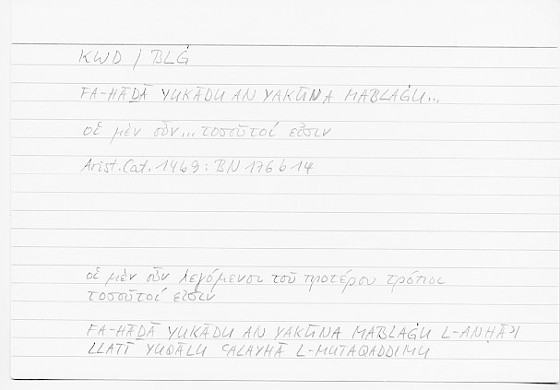 KWD / BLĠ
FA-HĀḎĀ YUKĀDU AN YAKŪNA MABLAĠU...
οἱ μὲν οὖν... τοσοῦτοί εἰσιν
Arist. Cat. 14b9: BN 176 b 14
οἱ μὲν οὖν λεγόμενοι τοῦ προτέρου τρόποι
τοσοῦτοί εἰσιν
FA-HĀḎĀ YUKĀDU AN YAKŪNA MABLAĠU L-ANḤĀʾI
LLATĪ YUQĀLU ʿALAYHĀ L-MUTAQADDIMU